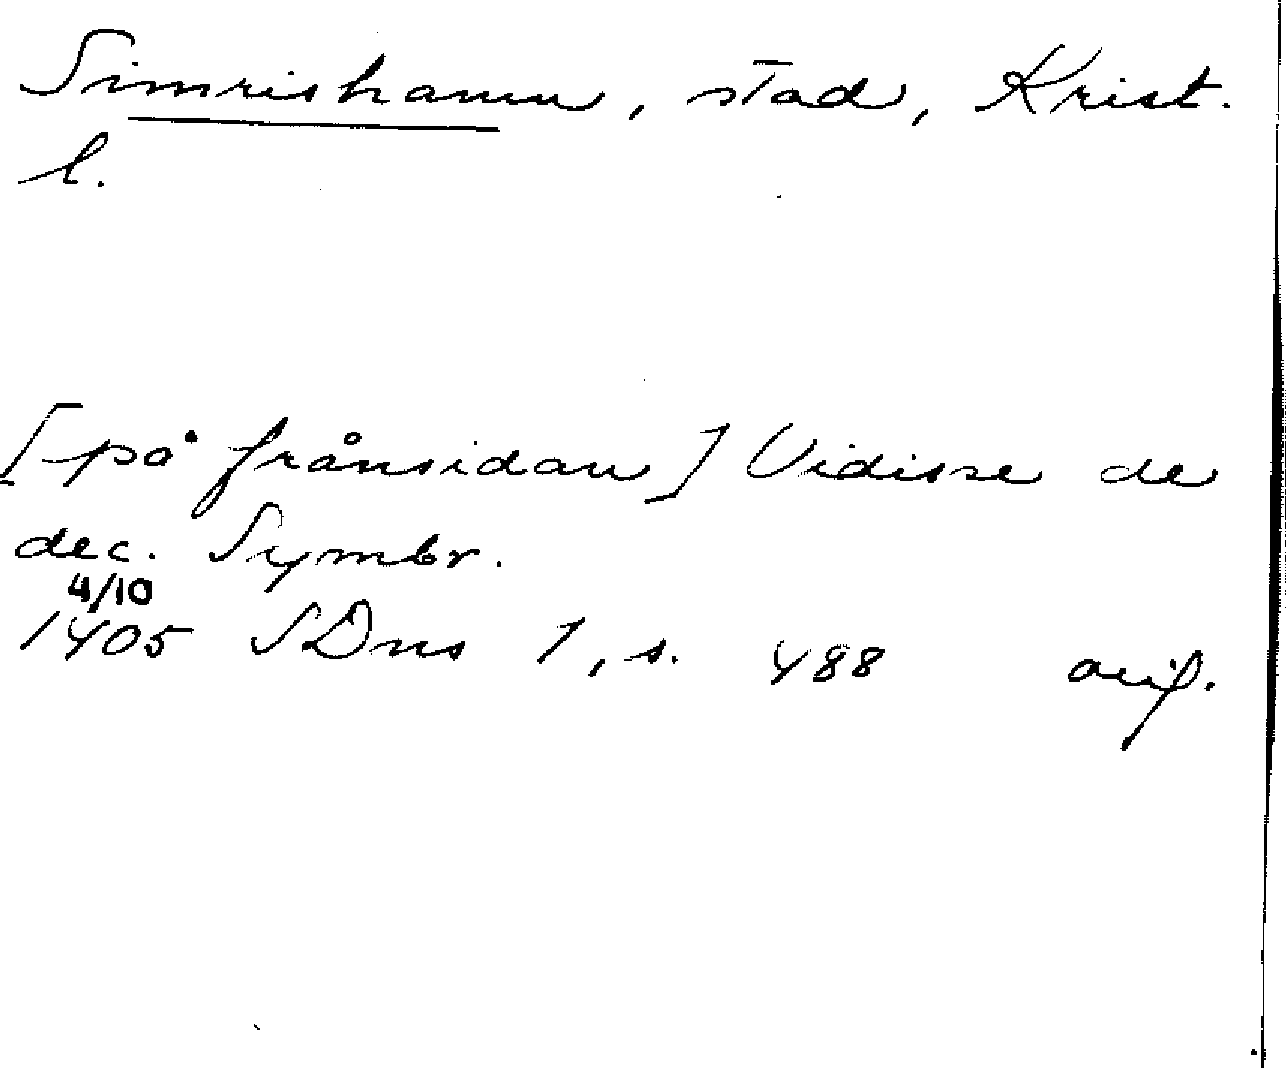 Simrishamn, stad, Krist.
l.
[på frånsidan] Vidisse de
dec. Symbr.
4/10
1405 SDns 1, s. 488 avif.